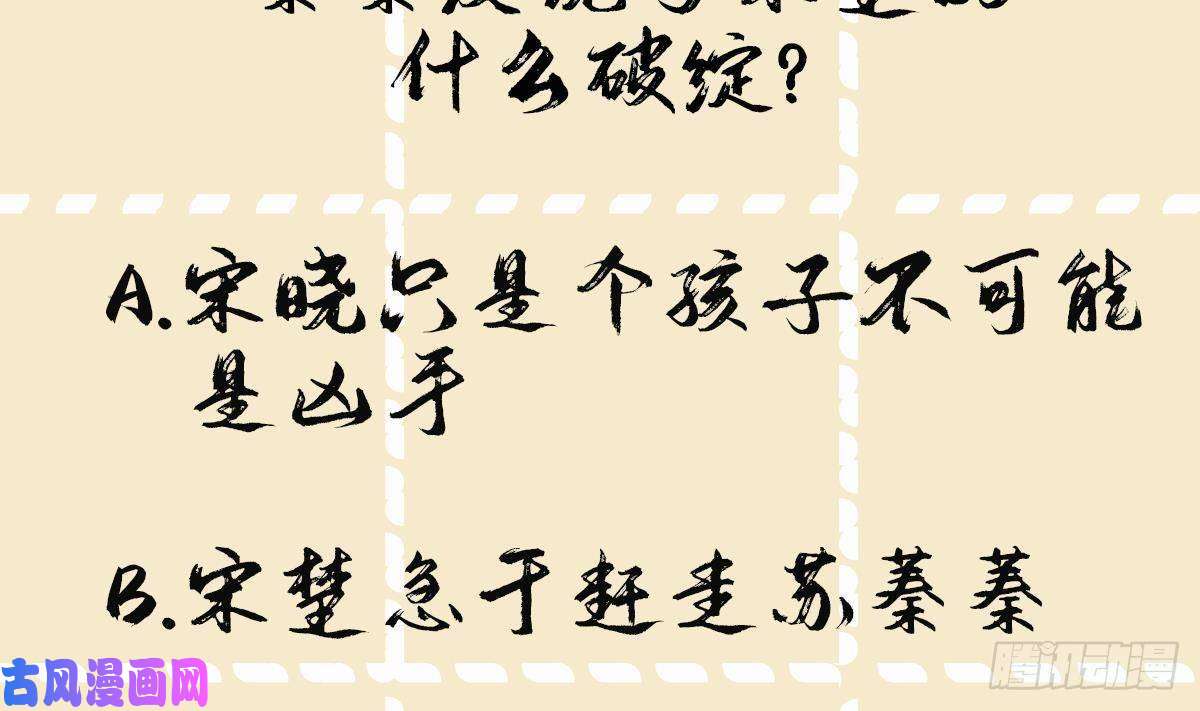 什么破绽?
A.宋晓只是个孩子不可能
是凶手
B.宋楚急于赶走苏蓁蓁
古风漫画网
腾讯动漫